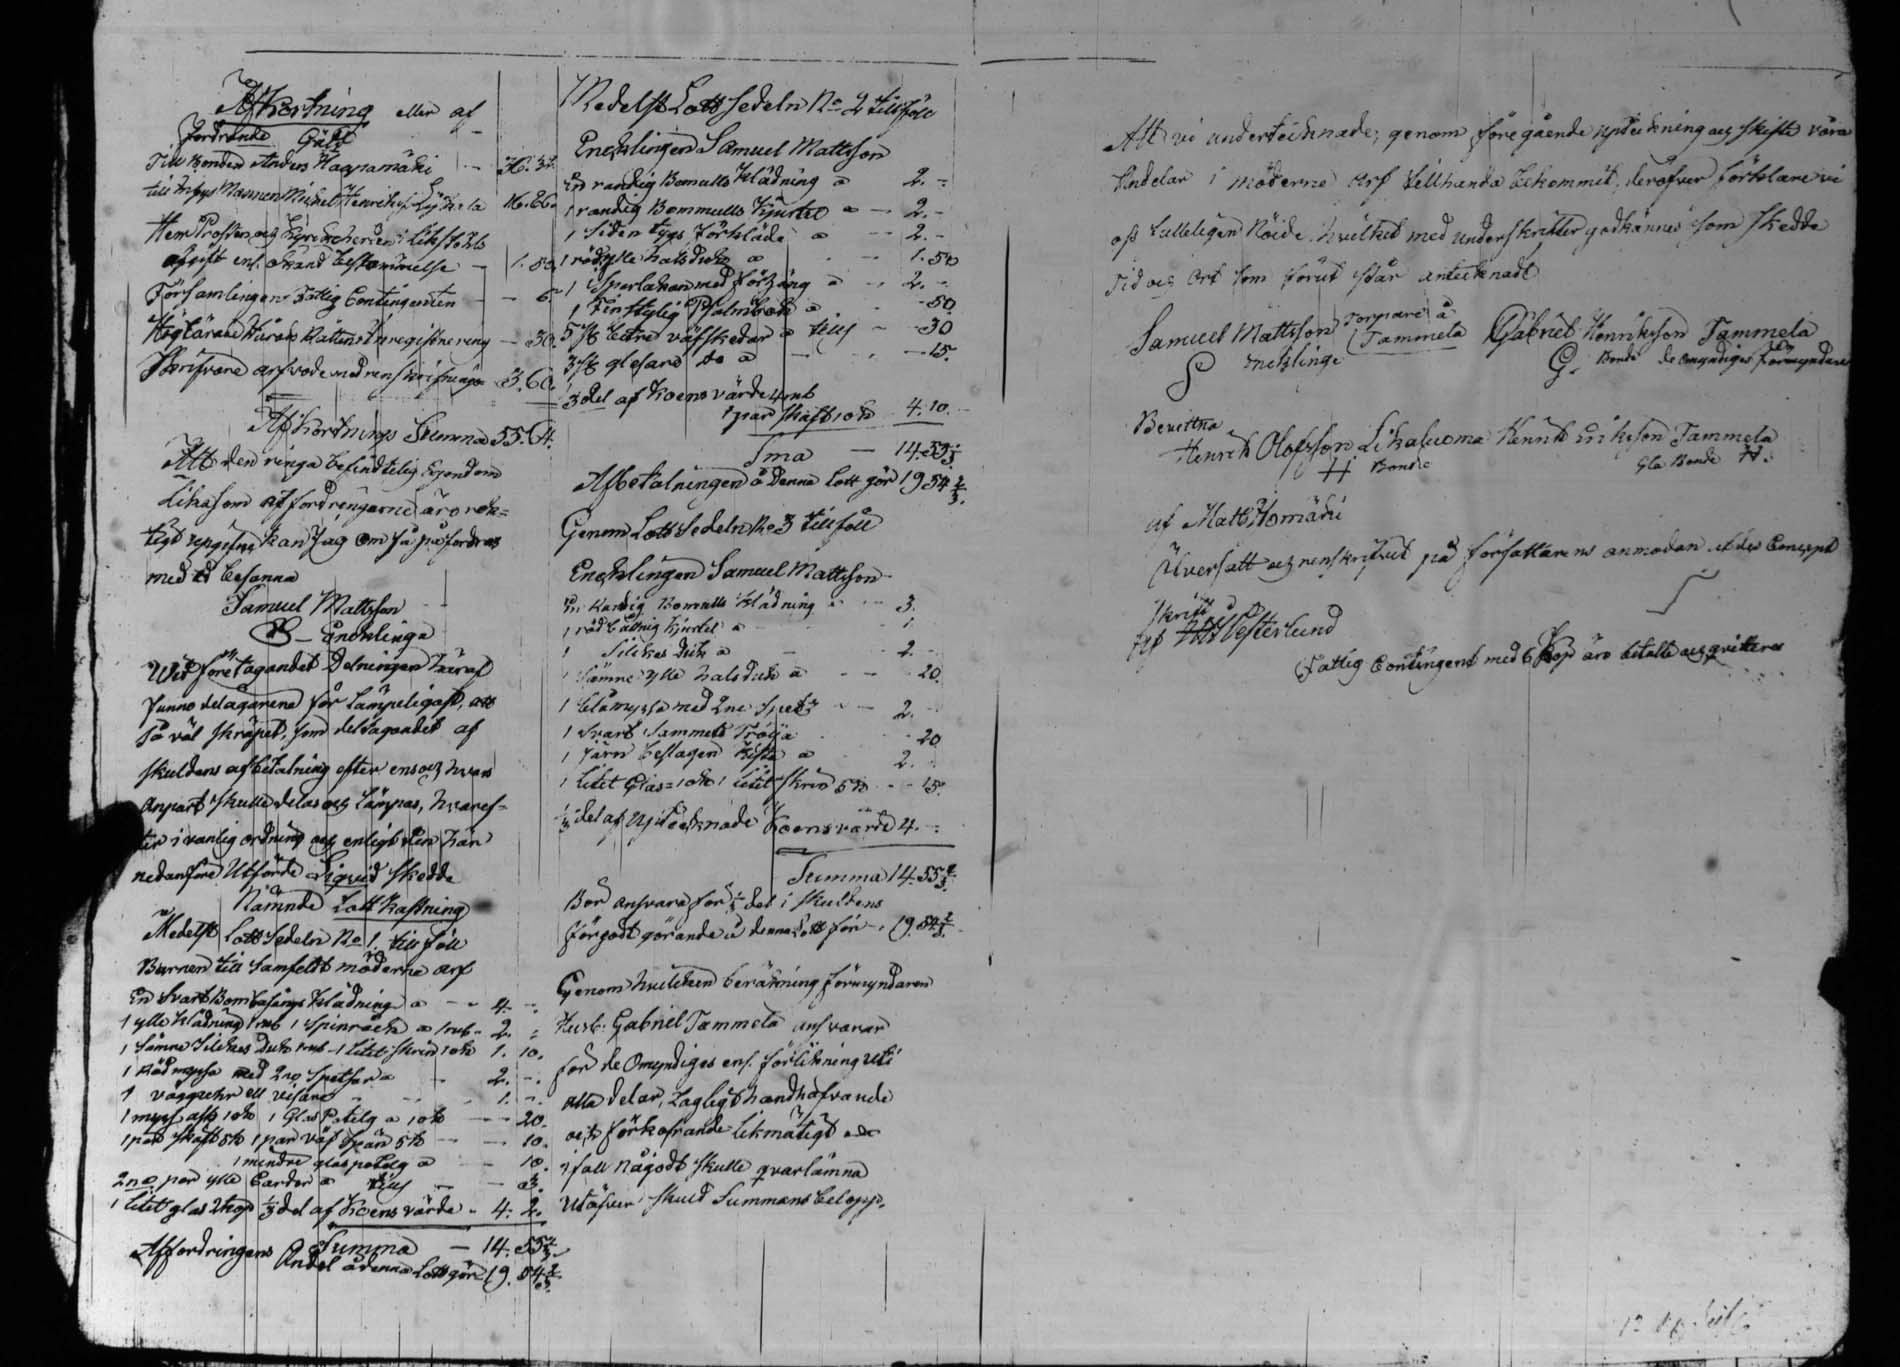 Afkortning eller af
fordrande Gäld
Till Bonden Anders Haapamäki - 36. 31.
till Mannen Michel Henriks
Herr Prosten och Kyrckoherden Likstohls
afgift enl. Okänd bestämmelse - 1. 50.
Församlingens Fattig Contingenten - - 6.
Höglärade Härads Rättens Inregistrering - 30.
Skrifvare arfvode med renskrifning 3. 60.
Afkortnings Summa 55. 64.
Att den ringa befindtelig Egendom
Lika som affordringarne äro rök=
tigt upgifne kan Jag om så påfordras
med Ed besanna
Samuel Mattsson
Enchlinge
Wid företagandet Delningen häraf
funno delägarena för lämpeligast, att
så väl skräpet, som deltagandet af
skuldens afbetalning efter ens och hvars
Anpart skulle delas och lämpas, hvaref=
ter i vanlig ordning och enligt den här
nedanföre Utförde Liquid skedde
Nämnde Lott kastning
Medelst Lott Sedeln No 1. tillföll
Barnen till samfeldt möderne arf
En Svart Bombasings Klädning a - - 4. -
1 ylle Klädning 1 rub 1 Spinrock a 1 rub - 2. -
1 Sämre Silckes Duk 1 rub - 1 litet skrin 10 k 1. 10.
1 Röd myssa med 2ne Spetsar a - 2. -
1 vägguhr ell visare - 1. -
1 ask 10 k 1 Glas Potelg a 10 k - - 20.
1 par skaft 5 k 1 par väf Spän 5 k - - 10.
1 mindre glas potelg a - 10.
2ne par ylle Cardor a - - 3.
1 litet glas 2 kop 1/3 del af Koens värde - 4. 2.
Summa - 14. 55 2/3
Affordringens Andel å denna Lott gör 19. 54 2/3.
Medelst Lott Sedeln No 2 tillföll
Enchlingen Samuel Mattsson
En randig Bomulls Klädning a 2. -
1 randig Bommulls Kjortel a - 2. -
1 Siden tygs Förkläde a - 2. -
1 röd ylle halsduk a - 1. 50
1 Sparlakan med Förhäng a - 2. -
1 Finstylig Psalmbok a - 50.
5 st bätre väfskedar a - 30
3 st glesare do a - - 15.
1/3 del af Koens värde 4 rub
1 par skaft 10 k 4. 10.
Sma - 14. 55 2/3
Afbetalningen å Denna Lott gör 19 54 2/3.
Genom Lott Sedeln No 3 tillföll
Enchlingen Samuel Mattsson
En Randig Bomulls Klädning a - 3.
1 rödbåttnig kjortel a - 1.
1 Silckes Duk a - 2. -
1 Sämre ylle halsduk a - - 20.
1 blå myssa med 2ne Spets - - 2.
1 Svart Sammets Tröija - 20
1 Järn beslagen Kista a 2.
1 litet Glas = 10 k 1 litet skrin 5 k - - 15.
1/3 del af Upteeknade Koens värde 4. -
Summa 14. 55 2/3.
Bör ansvara för 1/3 del i skuldens
förgodt görande å denna Lott för - 19. 54 2/3.
Genom hvilcken beräkning förmyndaren
Husb: Gabriel Tammela ansvarar
för de Omyndiges enl. förlikning uti
alla delar, Lagligt handhafvande
och förkofrande likmätigt
ifall någodt skulle qvarlämna
utöfver skuld Summans belopp.
Att vi undertecknade, genom föregående uptekning och skifte våra
Andelar i möderne Arf tillhanda bekommit, deröfver förklare vi
oss lulleligen nöide hvilket med underskrifter godkännes som skedde
Tid och Ort som förut står antecknadt
Samuel Mattsson Torpare å Tammela Gabriel Henriksson Tammela
S Encklinge G. Bonde de Omyndiges Förmyndare
Bevittna
Henrik Olofsson Likaluoma Henrik Eriksson Tammela
H Bonde Gla Bonde H.
af Matts Homäki
Öfversatt och renskrifvet på författarens anmodan efter Concept
Westerlund
Fattig Contingent med 6 Kop äro betalte och qvitteras